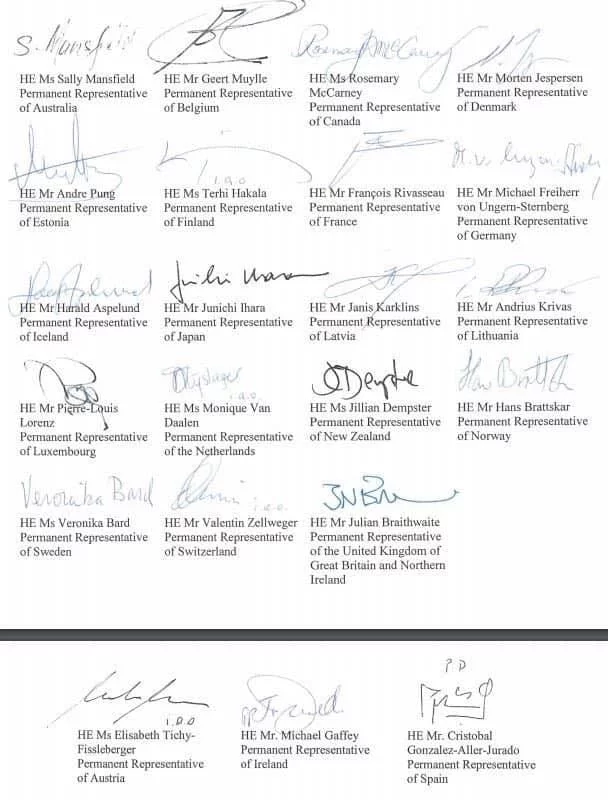 S. Mansfield
HE Ms Sally Mansfield
Permanent Representative
of Australia
HE Mr Geert Muylle
Permanent Representative
of Belgium
Rosemary McCarney
HE Ms Rosemary
McCarney
Permanent Representative
of Canada
HE Mr Morten Jespersen
Permanent Representative
of Denmark
HE Mr Andre Pung
Permanent Representative
of Estonia
i.a.o
HE Ms Terhi Hakala
Permanent Representative
of Finland
HE Mr François Rivasseau
Permanent Representative
of France
HE Mr Michael Freiherr
von Ungern-Sternberg
Permanent Representative
of Germany
HE Mr Harald Aspelund
Permanent Representative
of Iceland
Junichi Ihara
HE Mr Junichi Ihara
Permanent Representative
of Japan
HE Mr Janis Karklins
Permanent Representative
of Latvia
HE Mr Andrius Krivas
Permanent Representative
of Lithuania
HE Mr Pierre-Louis
Lorenz
Permanent Representative
of Luxembourg
i.a.o.
HE Ms Monique Van
Daalen
Permanent Representative
of the Netherlands
JDempster
HE Ms Jillian Dempster
Permanent Representative
of New Zealand
Hans Brattskar
HE Mr Hans Brattskar
Permanent Representative
of Norway
Veronika Bard
HE Ms Veronika Bard
Permanent Representative
of Sweden
HE Mr Valentin Zellweger
Permanent Representative
of Switzerland
HE Mr Julian Braithwaite
Permanent Representative
of the United Kingdom of
Great Britain and Northern
Ireland
HE Ms Elisabeth Tichy-
Fissleberger
Permanent Representative
of Austria
pp
HE Mr. Michael Gaffey
Permanent Representative
of Ireland
P D
HE Mr. Cristobal
Gonzalez-Aller-Jurado
Permanent Representative
of Spain